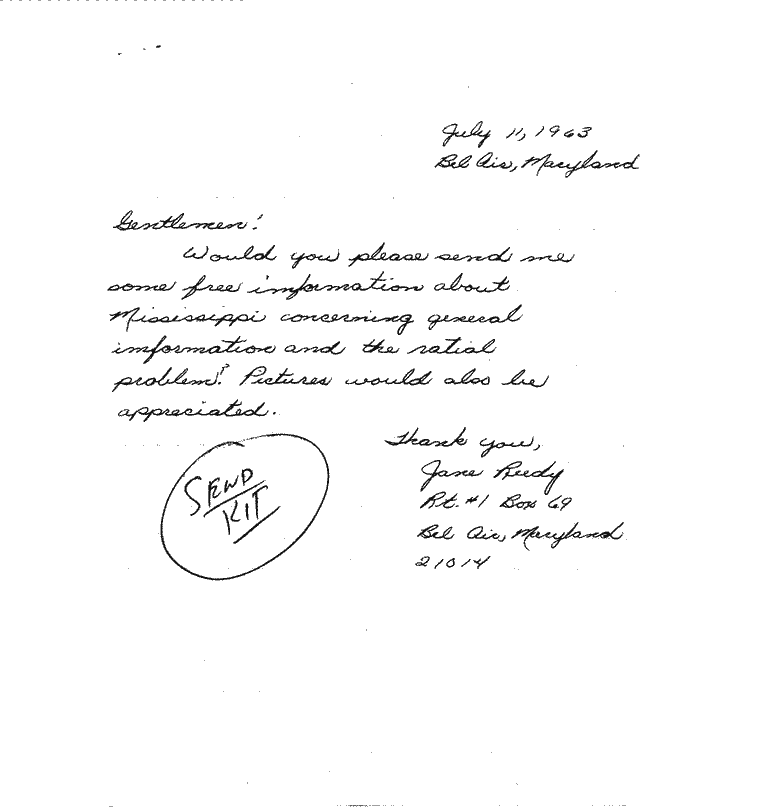 July 11, 1963
Bel Air, Maryland
Gentlemen:
Would you please send me
some free information about
Mississippi concerning general
information and the ratial
problem? Pictures would also be
appreciated.
Thank you,
Jane Reedy
Rt. #1 Box 69
Bel Air, Maryland
21014
SEND
KIT